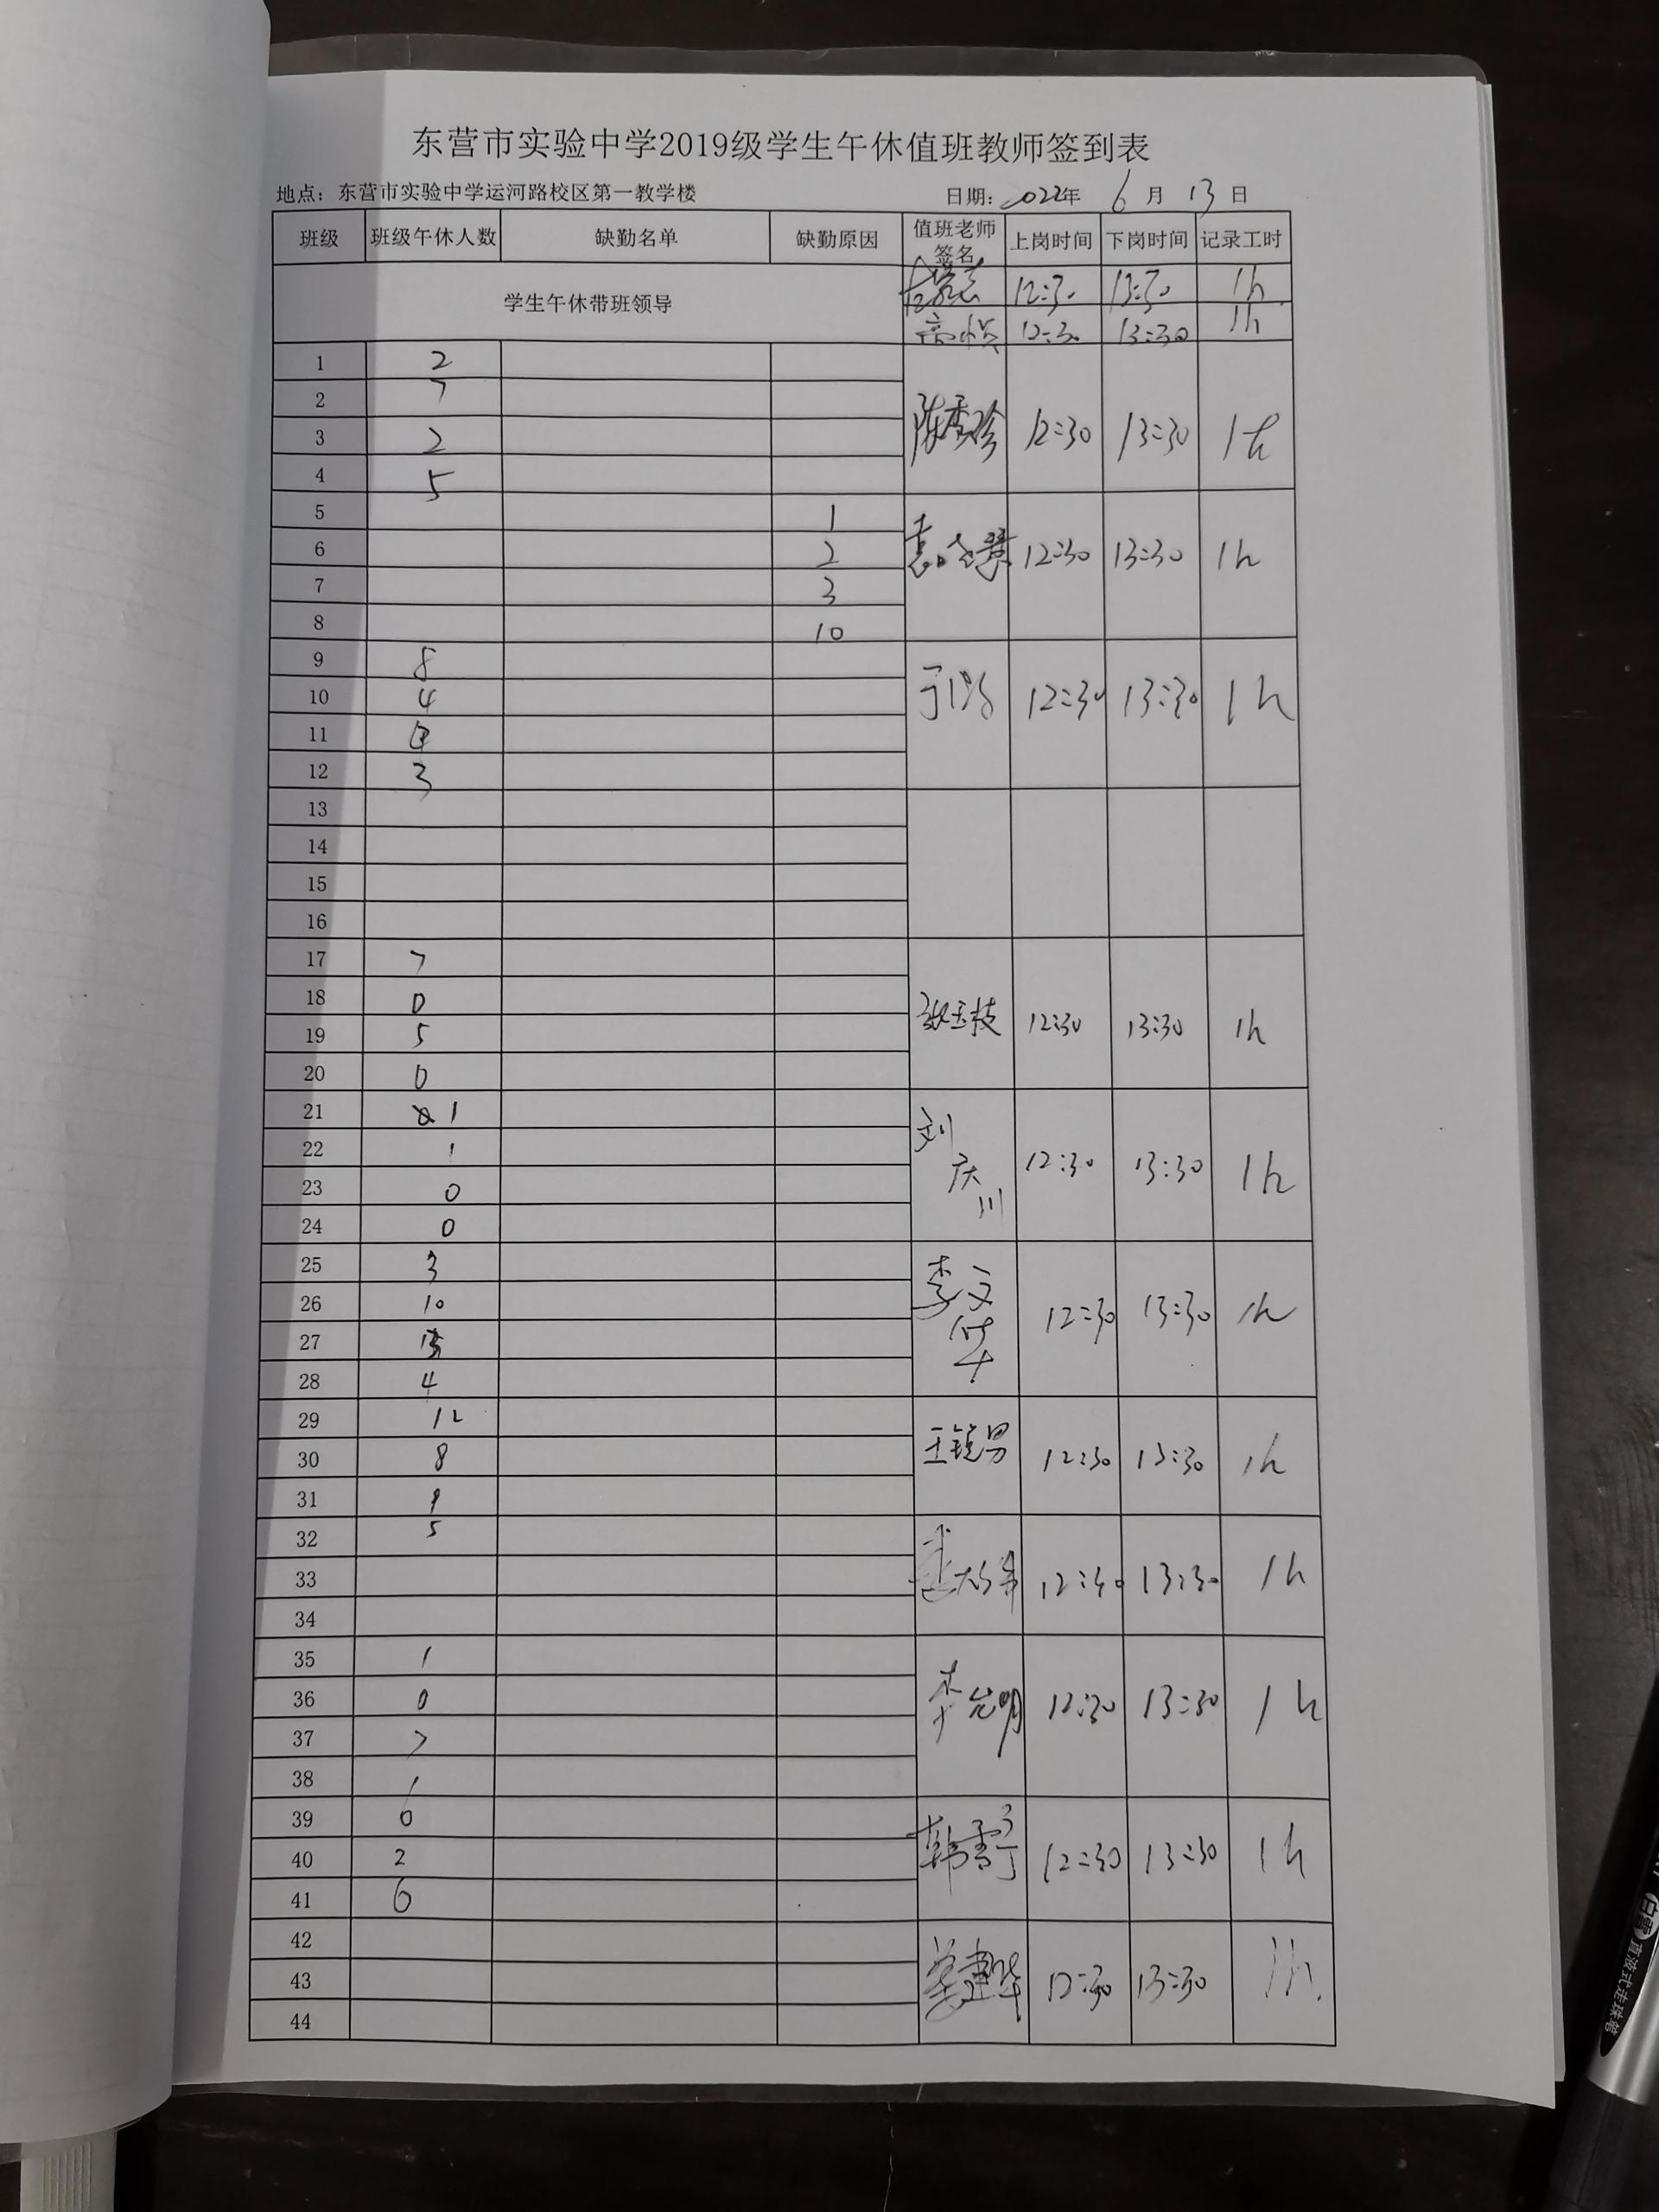 东营市实验中学2019级学生午休值班教师签到表
地点：东营市实验中学运河路校区第一教学楼 日期：2022年 6 月 13 日
班级 班级午休人数 缺勤名单 缺勤原因 值班老师签名 上岗时间 下岗时间 记录工时
学生午休带班领导 12:30 13:30 1h
12:30 13:30 1h
1 2
2 7
3 2 陈秀珍 12:30 13:30 1h
4 5
5 1
6 2 12:30 13:30 1h
7 3
8 10
9 8
10 4 12:30 13:30 1h
11
12 3
13
14
15
16
17 7
18 0
19 5 张玉枝 12:30 13:30 1h
20 0
21 1
22 1
23 0 刘庆川 12:30 13:30 1h
24 0
25 3
26 10 12:30 13:30 1h
27
28 4
29 12
30 8 王锐男 12:30 13:30 1h
31
32 5
33 12:30 13:30 1h
34
35 1
36 0 12:30 13:30 1h
37 7
38 1
39 0
40 2 韩雪宁 12:30 13:30 1h
41 6
42
43 12:30 13:30 1h
44
白雪 直液式走珠笔